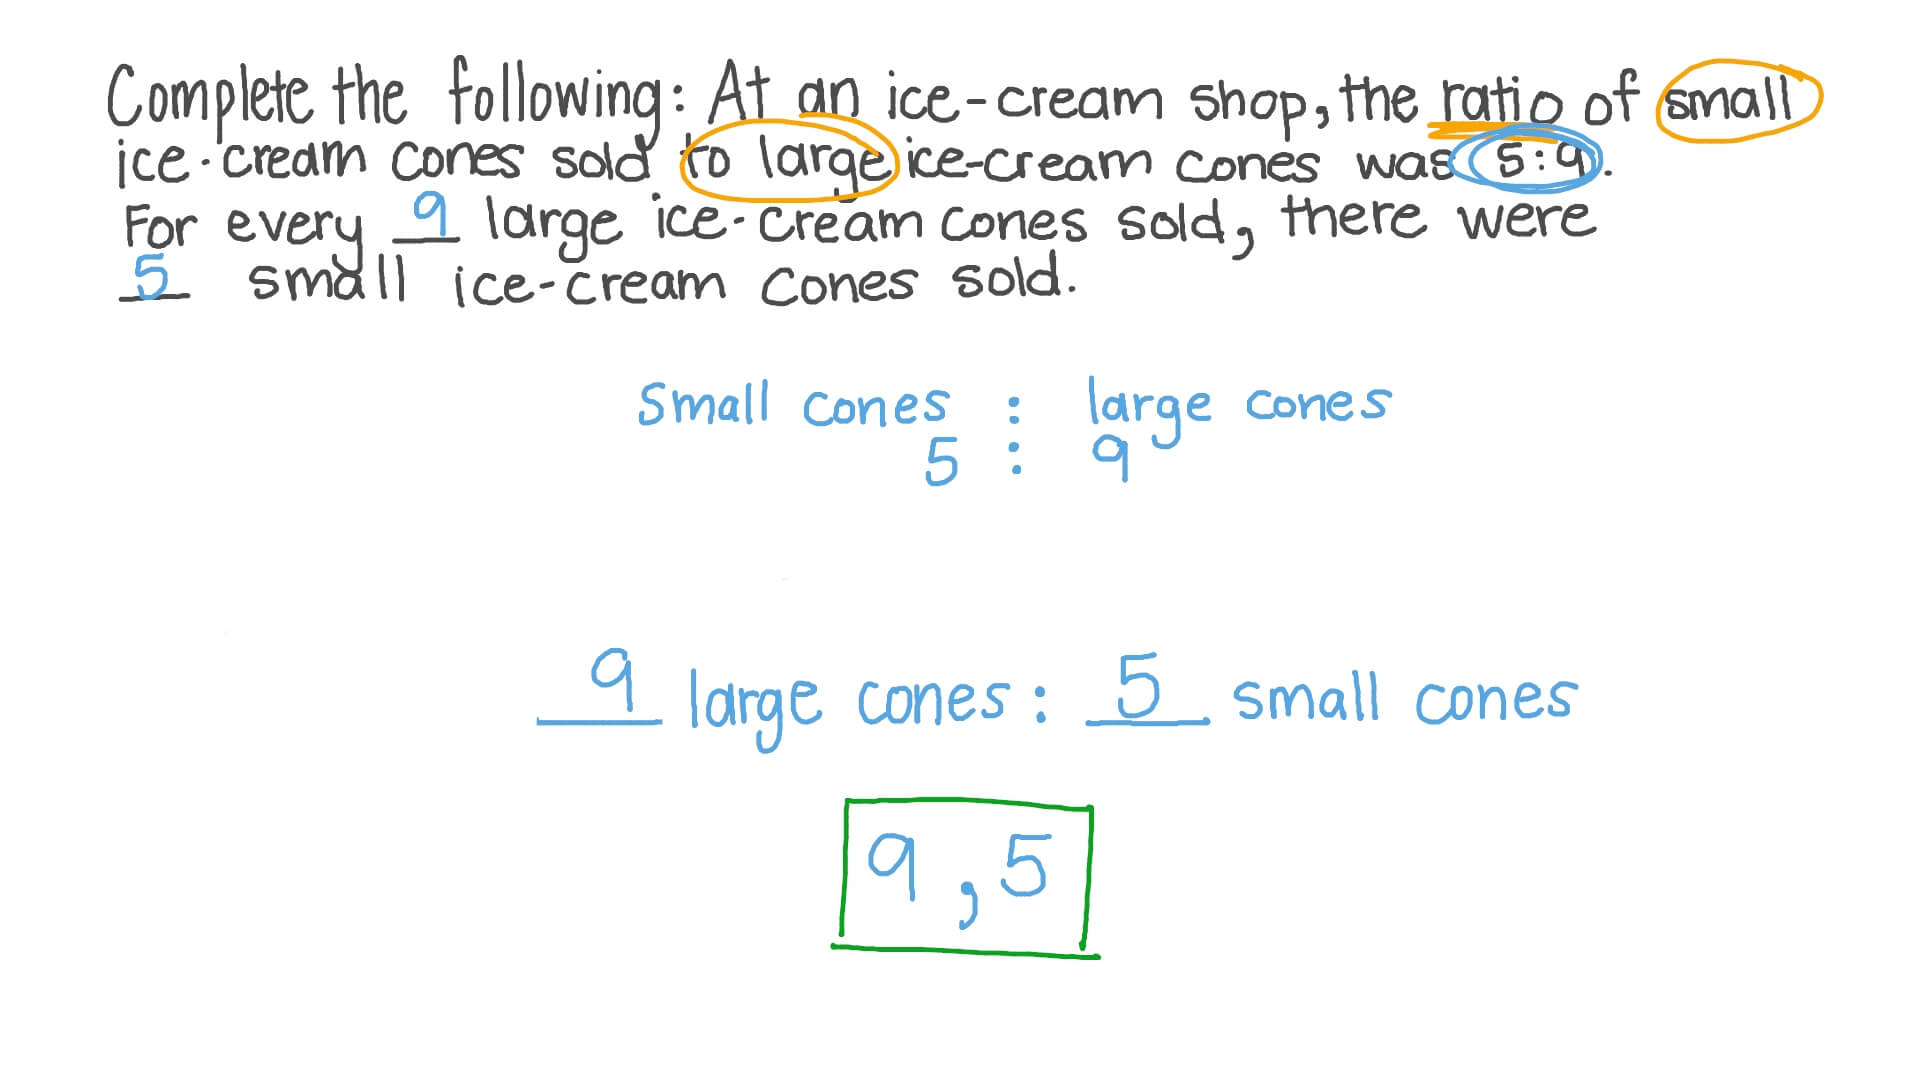 Complete the following: At an ice-cream shop, the ratio of small
ice-cream cones sold to large ice-cream cones was 5:9.
For every 9 large ice-cream cones sold, there were
5 small ice-cream cones sold.
Small cones : large cones
5 : 9
9 large cones : 5 small cones
9, 5